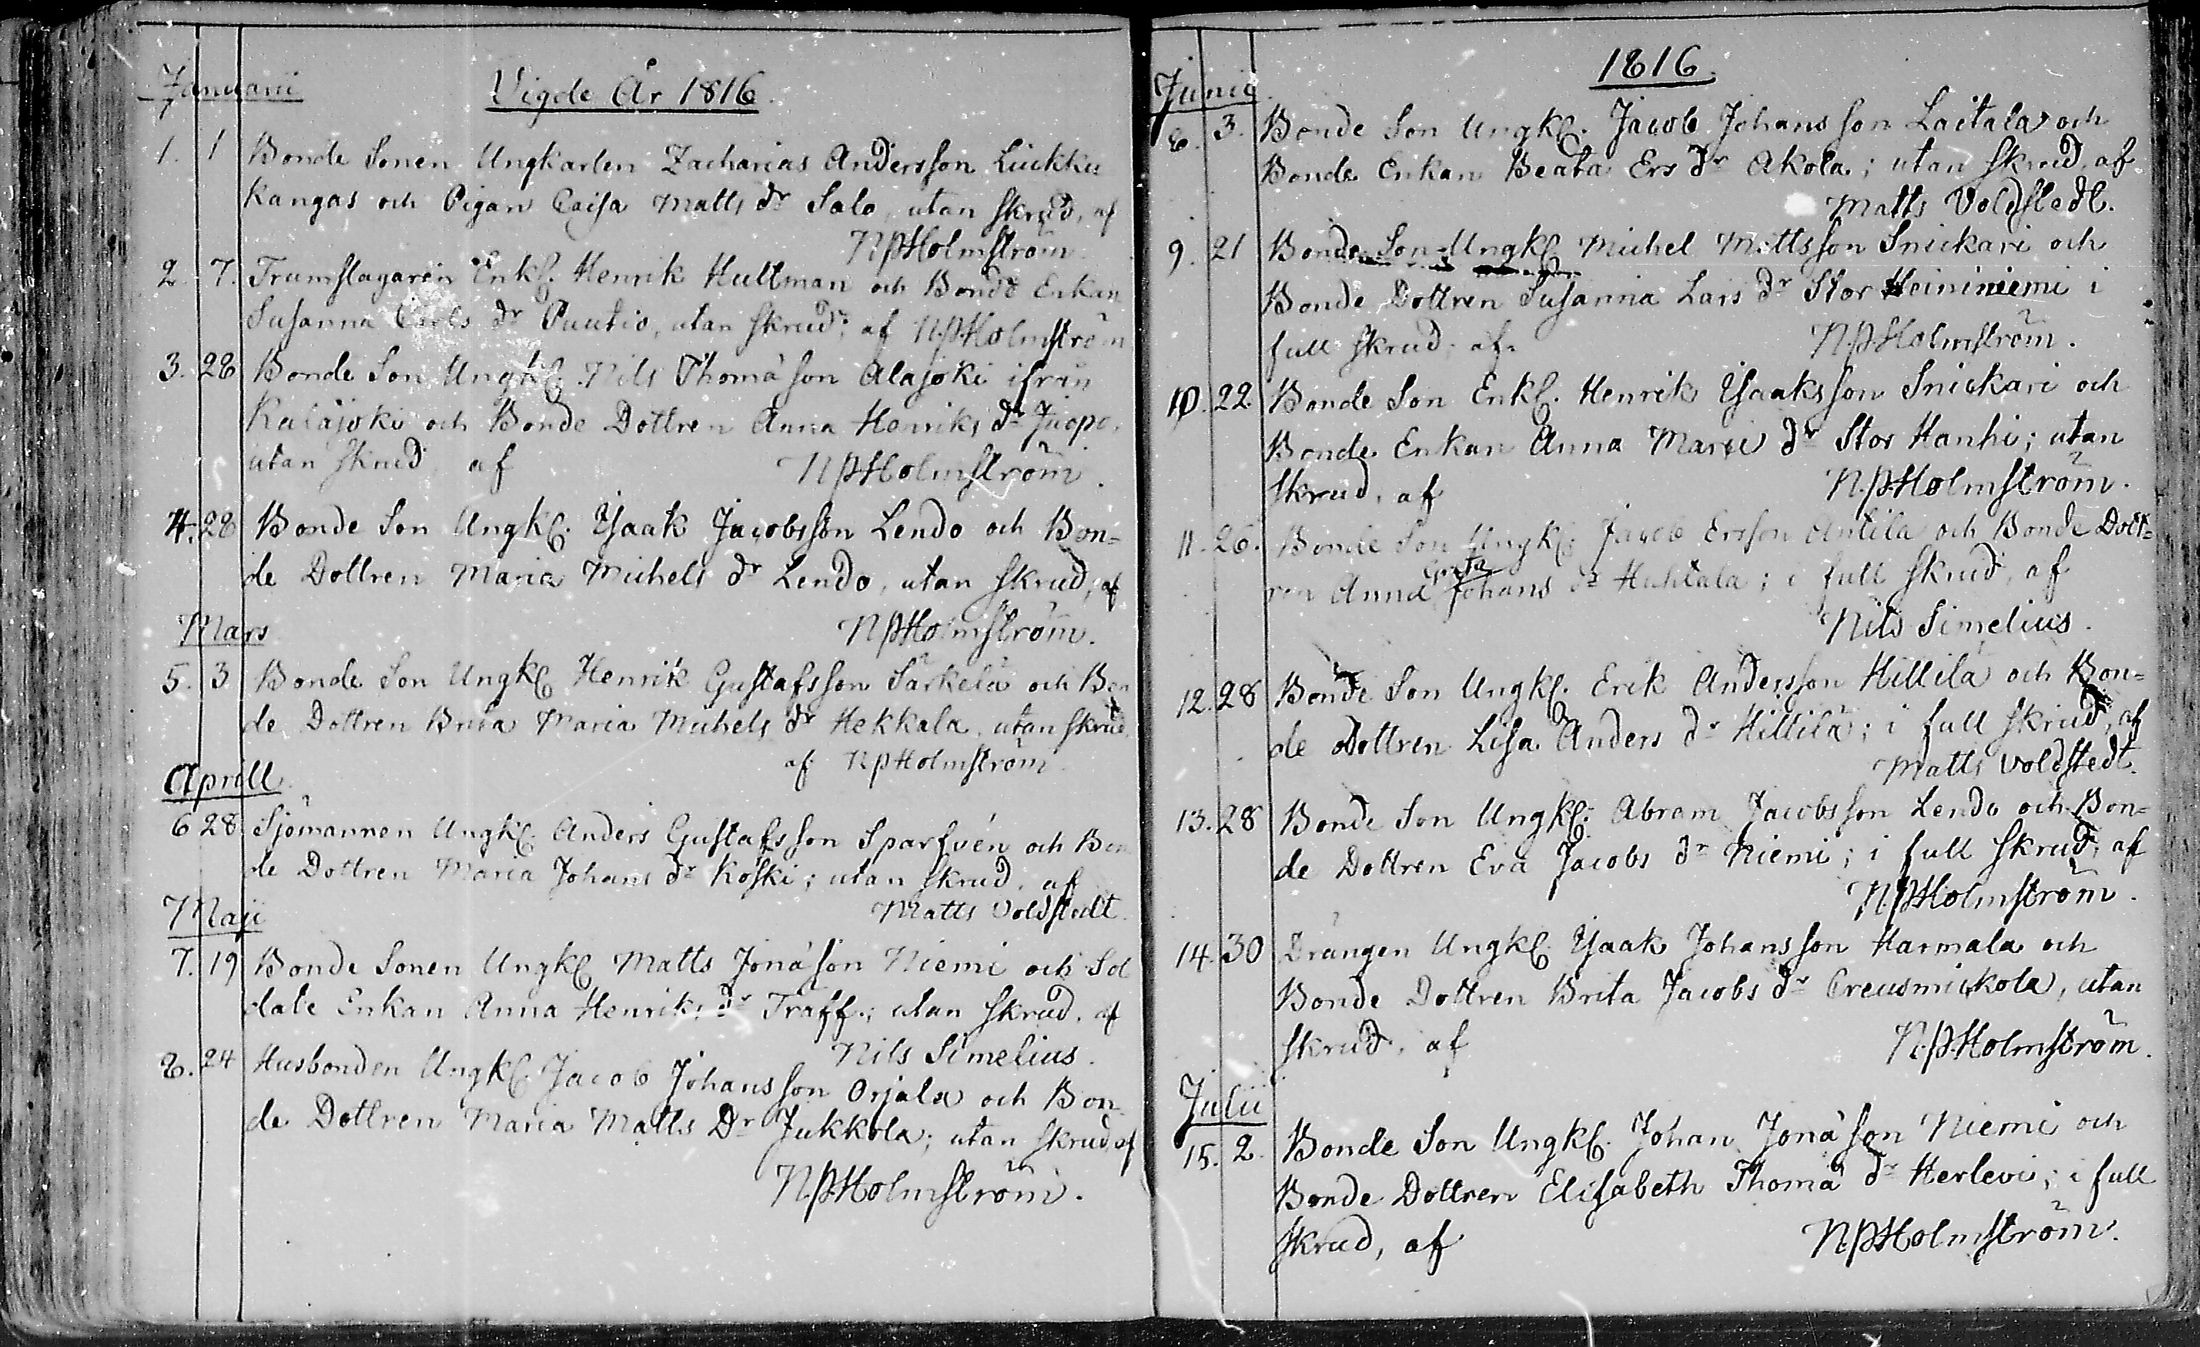 Januarii
Vigde År 1816.
1. 1 Bonde Sonen Ungkarlen Zacharias Andersson Luikku
kangas och Pigan Caisa Matts dr Salo, utan skrud, af
NPHolmström
2. 7. Trumslagaren Enkl. Henrik Hultman och Bonde Enkan
Susanna Carls dr Puutio, utan skrud; af NPHolmström
3. 28 Bonde Son Ungkl. Nils Thomä son Alajoki ifrån
Kalajoki och Bonde Dottren Anna Henriks dr Juopo,
utan skrud af NPHolmström.
4. 28 Bonde Son Ungkl. Isaak Jacobsson Lendo och Bon=
de Dottren Maria Michels dr Lendo, utan skrud, af
NPHolmström.
Mars
5. 3 Bonde Son Ungkl Henrik Gustafsson Särkelä och Bon
de Dottren Brita Maria Michels dr Hekkala, utan skrud,
af NPHolmström
Aprill
6 28 Sjömannen Ungkl. Anders Gustafsson Sparfvén och Bon
de Dottren Maria Johans dr Koski; utan skrud, af
Matts Voldstedt.
Maji
7. 19 Bonde Sonen Ungkl Matts Jonäson Niemi och Sol
date Enkan Anna Henriks dr Träff; utan skrud, af
Nils Simelius.
8. 24 Husbonden Ungkl Jacob Johansson Orjala och Bon
de Dottren Maria Matts Dr Jukkola; utan skrud, af
NPHolmström.
1816.
Junii
8. 3. Bonde Son Ungkl. Jacob Johansson Laitala och
Bonde Enkan Beata Ers dr Akola; utan skrud, af
Matts Voldstedt.
9. 21 Bonde Son Ungkl Michel Mattsson Snickari och
Bonde Dottren Susanna Lars dr Stor Heininiemi i
full skrud, af NPHolmström.
10. 22 Bonde Son Enkl. Henrik Isaaksson Snickari och
Bonde Enkan Anna Maria dr Stor Hanhi; utan
skrud, af NPHolmström.
11. 26. Bonde Son Ungkl. Jacob Ersson Antila och Bonde Dott=
ren Anna Greta Johans dr Huhtala; i full skrud, af
Nils Simelius.
12. 28 Bonde Son Ungkl. Erik Andersson Hillilä och Bon=
de Dottren Lisa Anders dr Hillilä; i full skrud, af
Matts Voldstedt.
13. 28 Bonde Son Ungkl. Abram Jacobsson Lendo och Bon=
de Dottren Eva Jacobs dr Niemi; i full skrud, af
NPHolmström.
14. 30 Drängen Ungkl. Isaak Johansson Harmala och
Bonde Dottren Brita Jacobs dr Creusmickola, utan
skrud, af NPHolmström.
Julii
15. 2. Bonde Son Ungkl. Johan Jonäson Niemi och
Bonde Dottren Elisabeth Thomä dr Herlevi; i full
skrud, af NPHolmström.